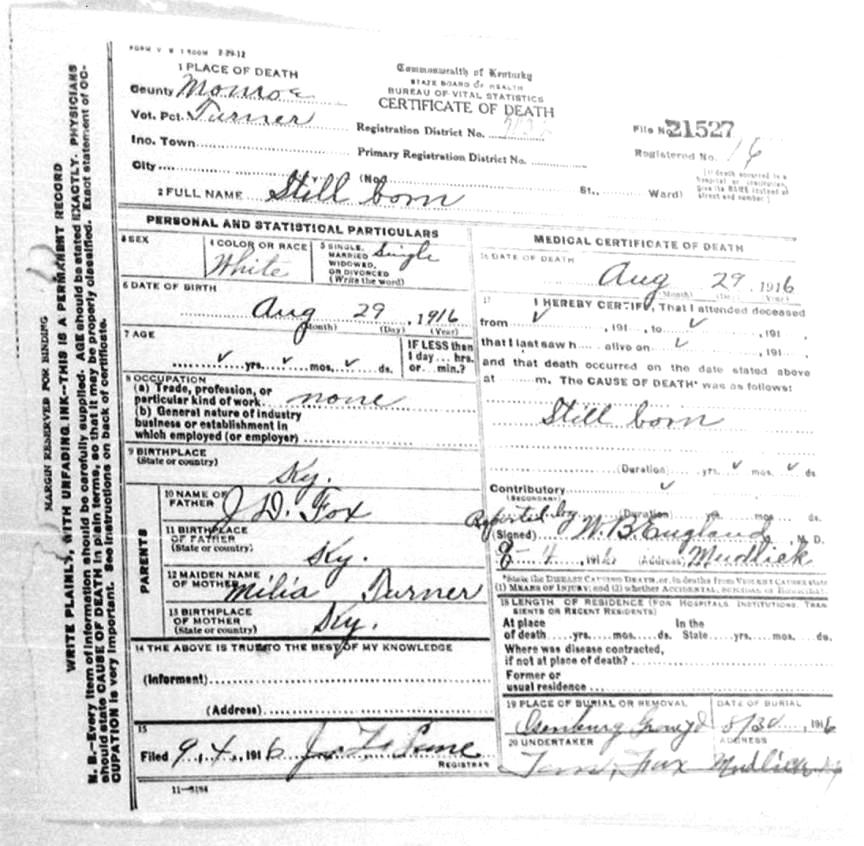 FORM V. S. 1 500M 2-29-12
1 PLACE OF DEATH
County Monroe
Vot. Pct. Turner
Inc. Town
City
Commonwealth of Kentucky
STATE BOARD OF HEALTH
BUREAU OF VITAL STATISTICS
CERTIFICATE OF DEATH
Registration District No.
Primary Registration District No.
(No. St., Ward)
File No. 21527
Registered No. 16
(If death occurred in a hospital or institution, give its NAME instead of street and number.)
2 FULL NAME Still born
PERSONAL AND STATISTICAL PARTICULARS
3 SEX
4 COLOR OR RACE
White
5 SINGLE, MARRIED, WIDOWED, OR DIVORCED (Write the word) Single
6 DATE OF BIRTH
Aug 29, 1916
(Month) (Day) (Year)
7 AGE
✓ yrs. ✓ mos. ✓ ds.
IF LESS than
1 day... hrs.
or... min.?
8 OCCUPATION
(a) Trade, profession, or
particular kind of work none
(b) General nature of industry
business or establishment in
which employed (or employer)
9 BIRTHPLACE
(State or country)
Ky.
PARENTS
10 NAME OF
FATHER J. D. Fox
11 BIRTHPLACE
OF FATHER
(State or country) Ky.
12 MAIDEN NAME
OF MOTHER Milia Turner
13 BIRTHPLACE
OF MOTHER
(State or country) Ky.
14 THE ABOVE IS TRUE TO THE BEST OF MY KNOWLEDGE
(Informent)
(Address)
15
Filed 9, 4, 1916
REGISTRAR
11-5184
MEDICAL CERTIFICATE OF DEATH
16 DATE OF DEATH
Aug 29, 1916
(Month) (Day) (Year)
17 I HEREBY CERTIFY, That I attended deceased
from ✓, 191, to ✓, 191
that I last saw h alive on ✓, 191
and that death occurred on the date stated above
at m. The CAUSE OF DEATH* was as follows:
Still born
(Duration) yrs. ✓ mos. ✓ ds
Contributory ✓
(SECONDARY)
(Duration) yrs. mos. ds.
Reported by
(Signed) W. B. England, M. D.
8-4, 1916 (Address) Mudlick
*State the DISEASE CAUSING DEATH, or, in deaths from VIOLENT CAUSES state
(1) MEANS OF INJURY; and (2) whether ACCIDENTAL, SUICIDAL or HOMICIDAL.
18 LENGTH OF RESIDENCE (FOR HOSPITALS INSTITUTIONS, TRAN
SIENTS OR RECENT RESIDENTS)
At place In the
of death yrs. mos. ds. State yrs. mos. ds.
Where was disease contracted,
if not at place of death?
Former or
usual residence
19 PLACE OF BURIAL OR REMOVAL
DATE OF BURIAL
8/30, 1916
20 UNDERTAKER
ADDRESS
Fox Mudlick Ky
MARGIN RESERVED FOR BINDING
WRITE PLAINLY, WITH UNFADING INK—THIS IS A PERMANENT RECORD
N. B.—Every item of information should be carefully supplied. AGE should be stated EXACTLY. PHYSICIANS
should state CAUSE OF DEATH in plain terms, so that it may be properly classified. Exact statement of OC-
CUPATION is very important. See instructions on back of certificate.